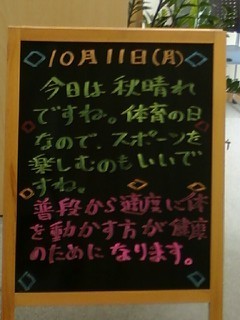 10月11日(月)
今日は秋晴れ
ですね。体育の日
なので、スポーツを
楽しむのもいいで
すね。
普段から適度に体
を動かす方が健康
のためになります。